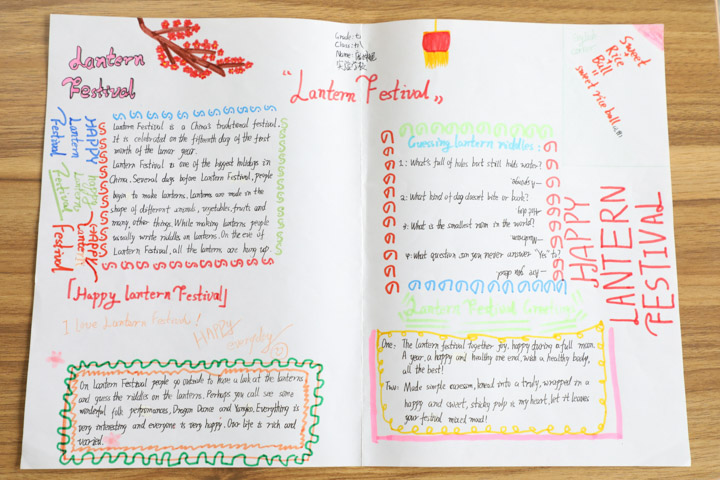 Lantern
Festival
Grade: 七
Class: 七1
Name:
"Lantern Festival"
Sweet
Rice
Ball
"
sweet rice ball
HAPPY
Lantern
Festival
happy
Lantern
Festival
HAPPY
Lantern
Festival
Lantern Festival is a China's traditional festival.
It is celebrated on the fifteenth day of the first
month of the lunar year.
Lantern Festival is one of the biggest holidays in
China. Several days before Lantern Festival, people
begin to make lanterns. Lanterns are made in the
shape of different animals, vegetables, fruits and
many, other things. While making lanterns people
usually write riddles on lanterns. On the eve of
Lantern Festival, all the lantern are hung up.
「Happy lantern Festival」
I love Lantern Festival!
HAPPY
everyday
On Lantern Festival people go outside to have a look at the lanterns
and guess the riddles on the lanterns. Perhaps you call see some
wonderful folk performances, Dragon Dance and Yangko. Everything is
very interesting and everyone is very happy. Our life is rich and
varied.
Guessing lantern riddles:
1: What's full of holes but still holds water?
—sponge
2: What kind of dog doesn't bite or bark?
—Hot dog
3: What is the smallest man in the world?
4: what question can you never answer "Yes" to?
—Are you dead?
HAPPY
LANTERN
FESTIVAL
Lantern Festival Greeting
One: The lantern festival together joy, happy during a full moon.
A year, a happy and healthy one end, with a healthy body,
all the best!
Two: Made simple awesom, knead into a truly, wrapped in a
happy and sweet, sticky pulp is my heart, let it leaves
your festival mixed mood!